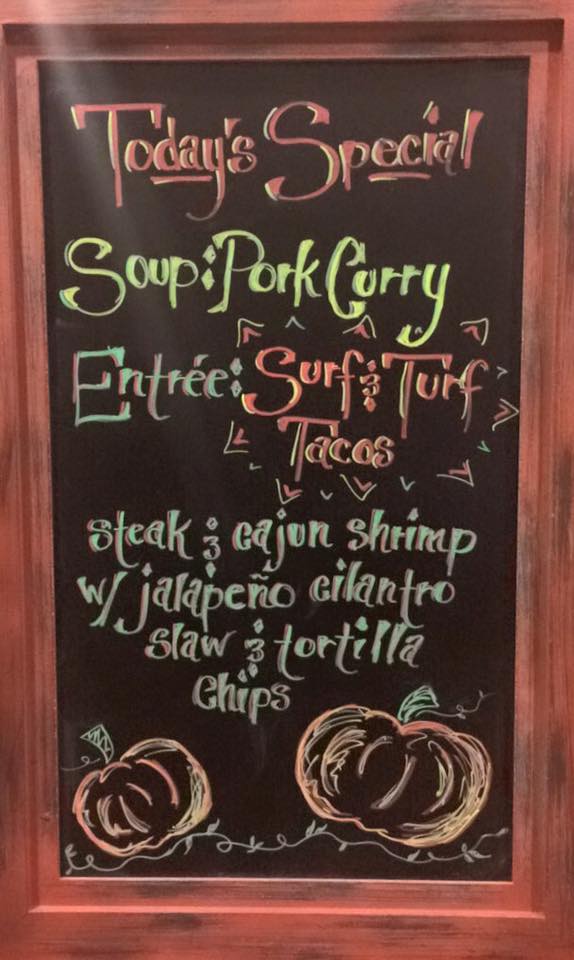 Today's Special
Soup: Pork Curry
Entrée: Surf & Turf
Tacos
steak & cajun shrimp
w/ jalapeño cilantro
slaw & tortilla
chips